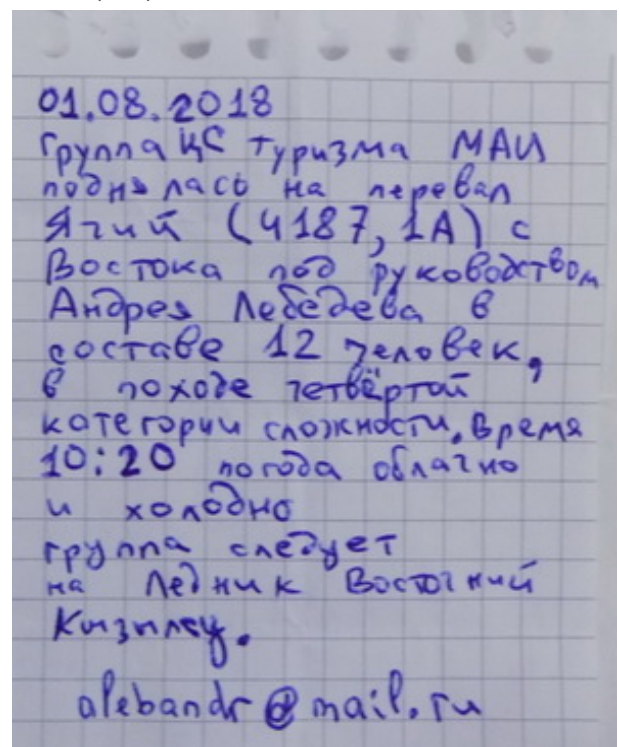 01.08.2018
Группа ЦС туризма МАИ
поднялась на перевал
Ягий (4187, 1А) с
Востока под руководством
Андрея Лебедева в
составе 12 человек,
в походе четвёртой
категории сложности. Время
10:20 погода облачно
и холодно
группа следует
на Ледник Восточный
alebandr@mail.ru